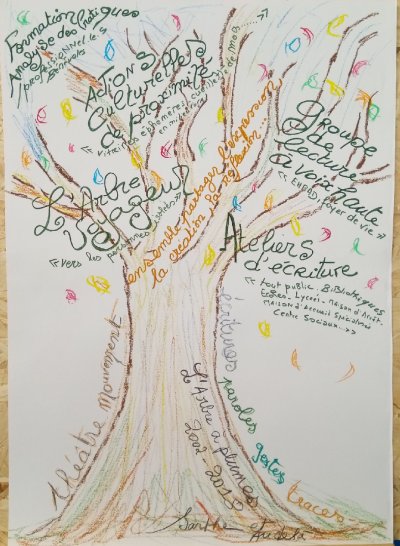 Formation
Analyse des Pratiques
professionnel.le.s
bénévoles
Actions
Culturelles
de proximité
« vitrines éphémères, cueilleuse de mots...... »
Groupe
de
lecture
à voix haute
« EHPAD, foyer de vie »
L'Arbre
Voyageur
« vers les personnes isolées »
ensemble partager l'expression
la création la réflexion...
Ateliers
d'écriture
« tout public - Bibliothèques
Ecoles - Lycées - Maison d'Arrêt -
Maison d'Accueil Spécialisée
Centre Sociaux...»
théâtre mouvement
écritures paroles gestes traces...
L'Arbre a plumes
2002 -
Sarthe
Au delà